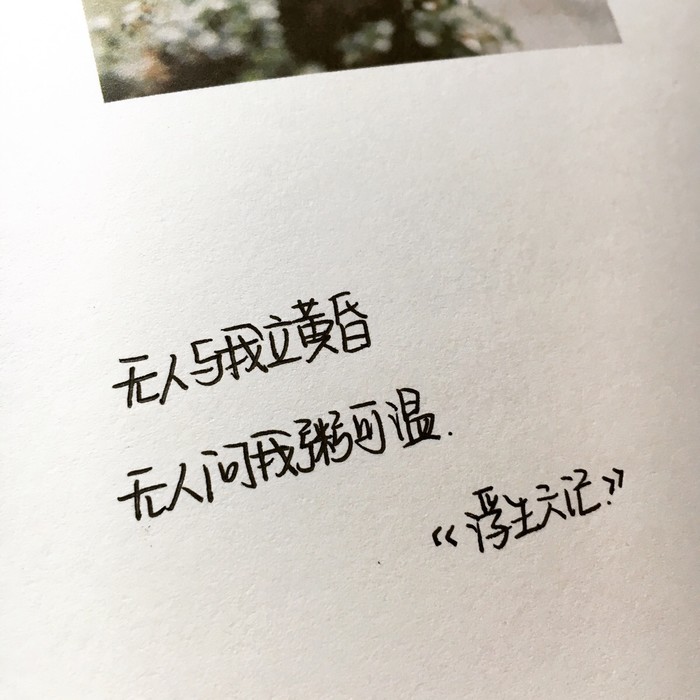 无人与我立黄昏
无人问我粥可温.
《浮生六记.》